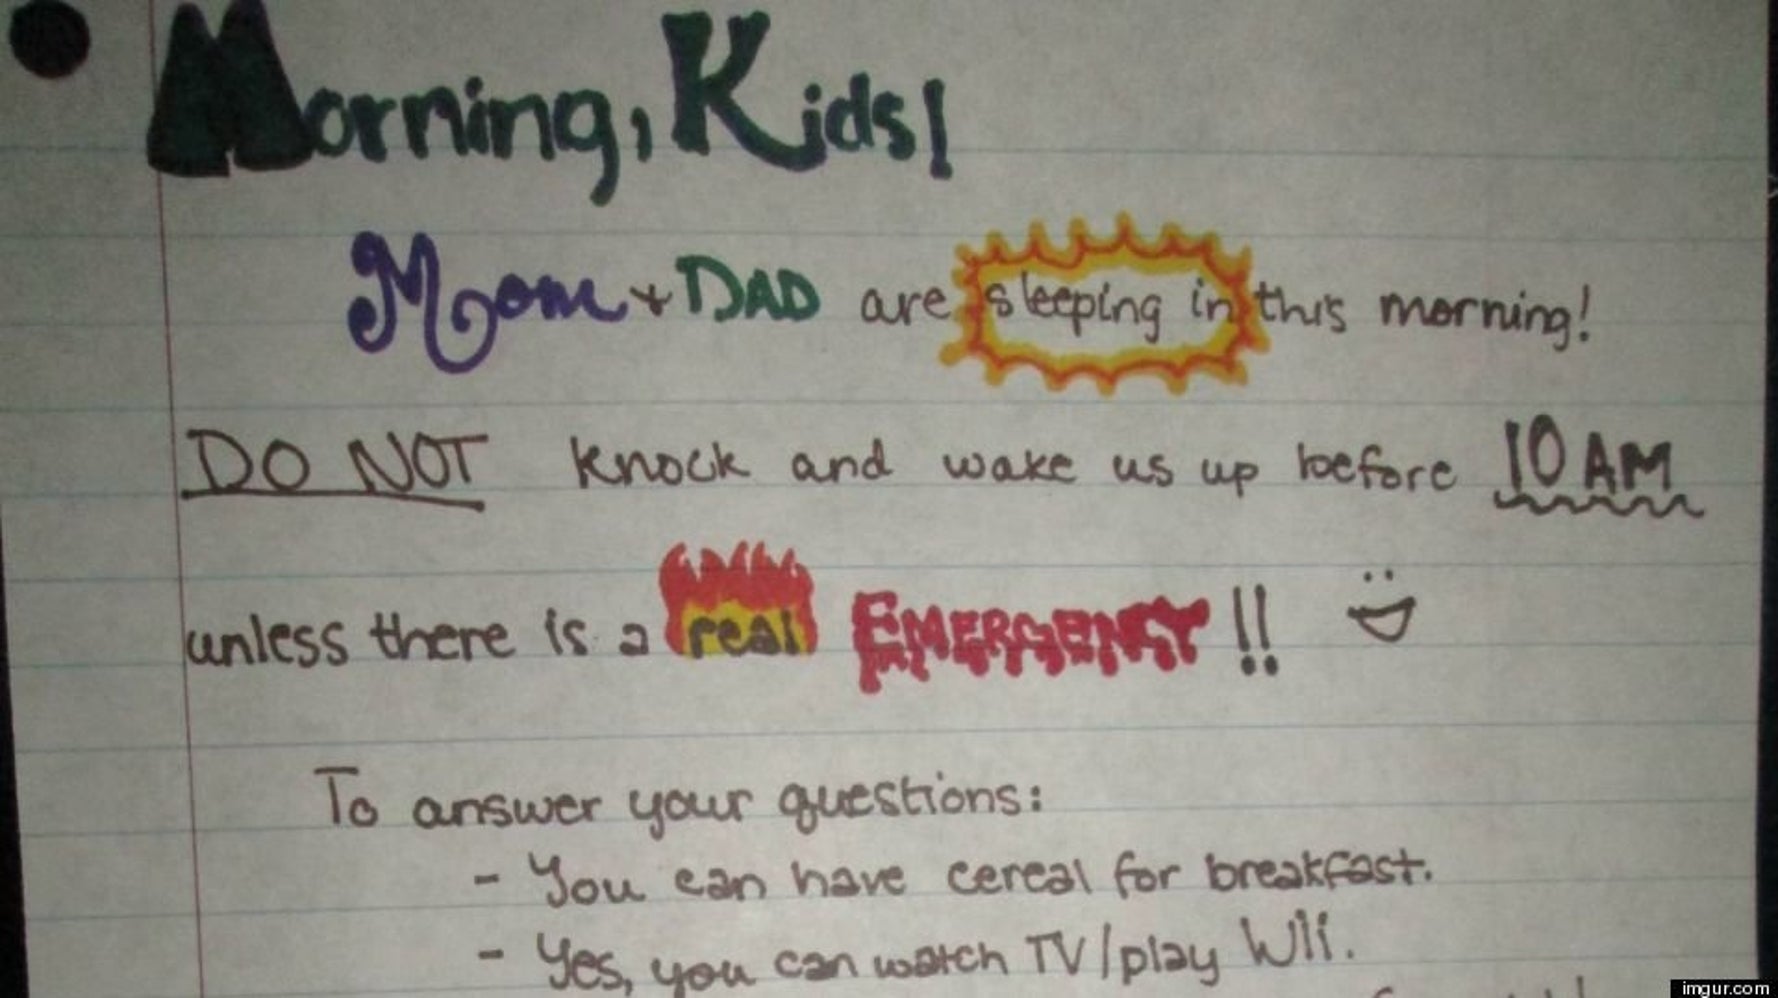 Morning, Kids!
Mom + DAD are sleeping in this morning!
DO NOT knock and wake us up before 10 AM
unless there is a real EMERGENCY!! :D
To answer your questions:
- You can have cereal for breakfast.
- Yes, you can watch TV/play Wii.
imgur.com